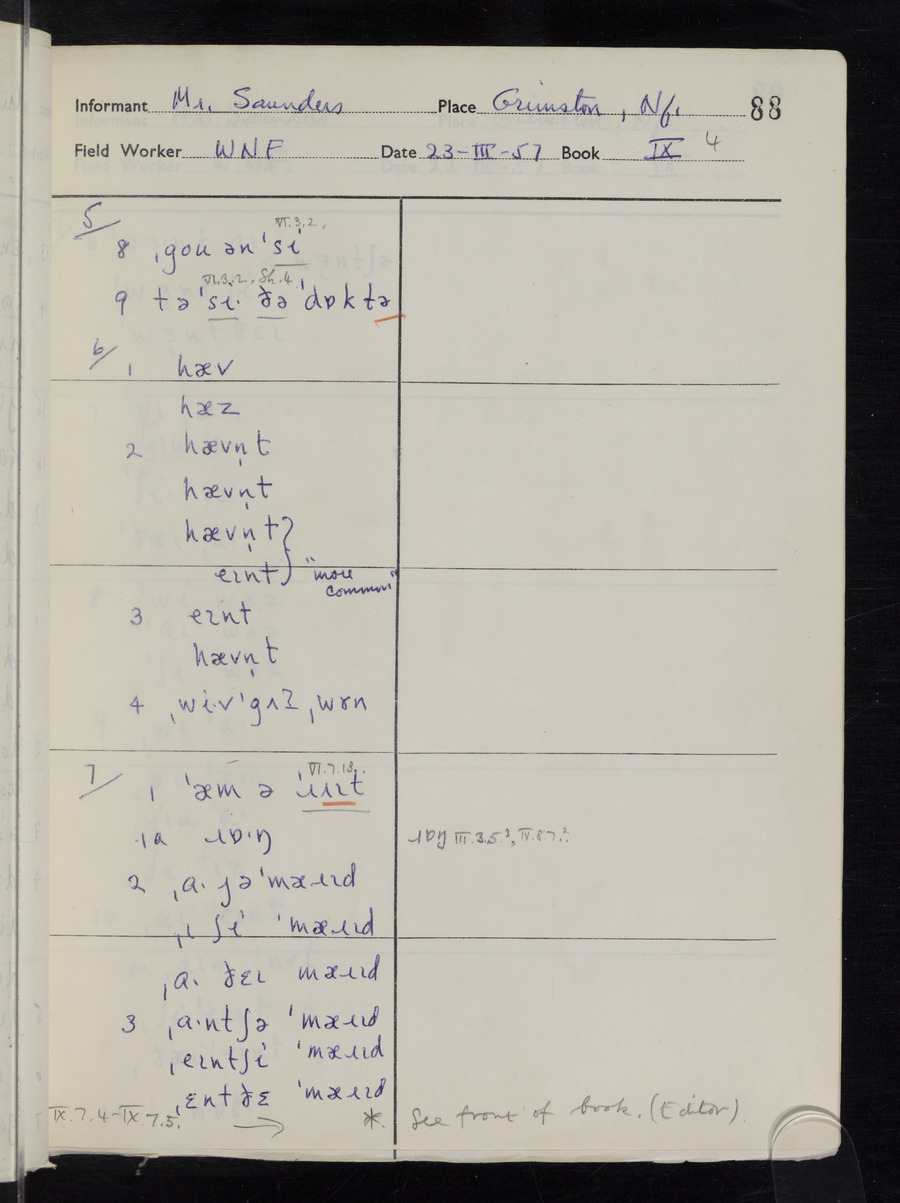 Informant Mr. Saunders Place Grimston, Nf. 88
Field Worker WNF Date 23-III-57 Book IX 4
5/
VI.3.2,
8 ˌgou ən ˈsi
VI.3.2, Sh.4,
9 tə ˈsi· ðə ˈdɒktə
6/
1 hæv
hæz
2 hævn̩t
hævn̩t
hævn̩t }
eɪnt } "more common"
3 eɪnt
hævn̩t
4 ˌwi·v ˈgɒʔ ˌwɤn
7/
VI.7.13.
1 ˈæm ə ˈɹɪɪt
1a ɹɒ·ŋ ɹɒŋ III.3.5³, IV.8.7.²
2 ˌɑ· jə ˈmæɹɪd
ˌɪ ʃi ˈmæɹɪd
ˌɑ· ðɛɪ ˈmæɹɪd
3 ˌɑ·ntʃə ˈmæɹɪd
ˌeɪntʃi ˈmæɹɪd
ˌɛntðɛ ˈmæɹɪd
IX.7.4-IX 7.5. → *. See front of book. (Editor).